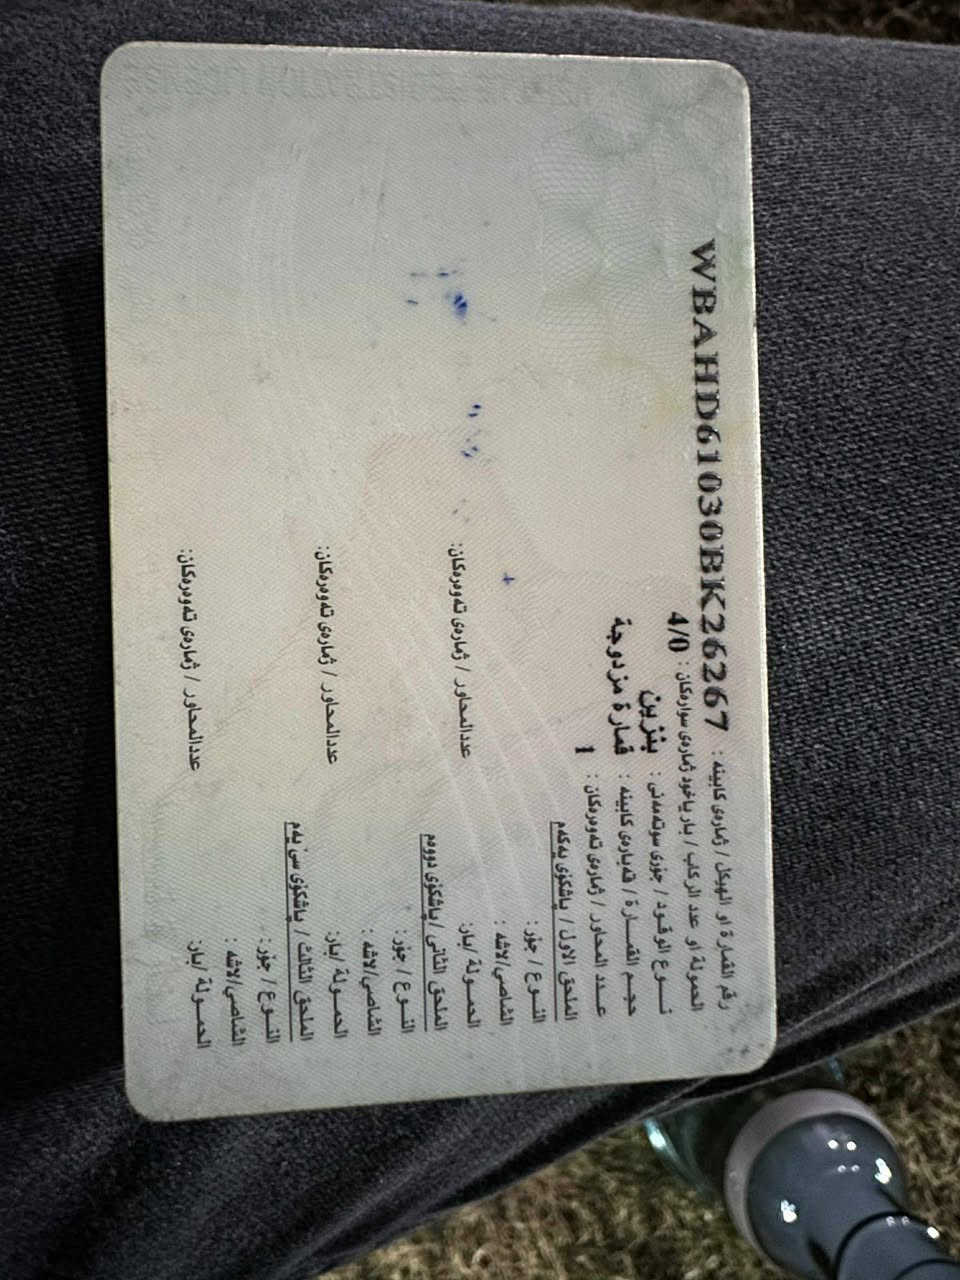 رقم القمارة او الهيكل / ژمارەی کابینە : WBAHD61030BK26267
الحمولة او عدد الركاب / بار یاخود ژمارەی سوارەکان : 4/0
نـــوع الوقـود / جۆری سوتەمەنی : بنزين
حجـم القمـارة / قەبارەی کابینە : قمارة مزدوجة
عـدد المحاور / ژمارەی تەوەرەکان : 1
الملحق الاول / پاشکۆی یەکەم
النــوع / جۆر:
الشاصي/لاشە :
الحمــولة /بار: عددالمحاور / ژمارەی تەوەرەکان:
الملحق الثاني / پاشکۆی دووەم
النــوع / جۆر:
الشاصي/لاشە :
الحمــولة /بار: عددالمحاور / ژمارەی تەوەرەکان:
الملحق الثالث / پاشکۆی سێ یەم
النــوع / جۆر:
الشاصي/لاشە :
الحمــولة /بار: عددالمحاور / ژمارەی تەوەرەکان: